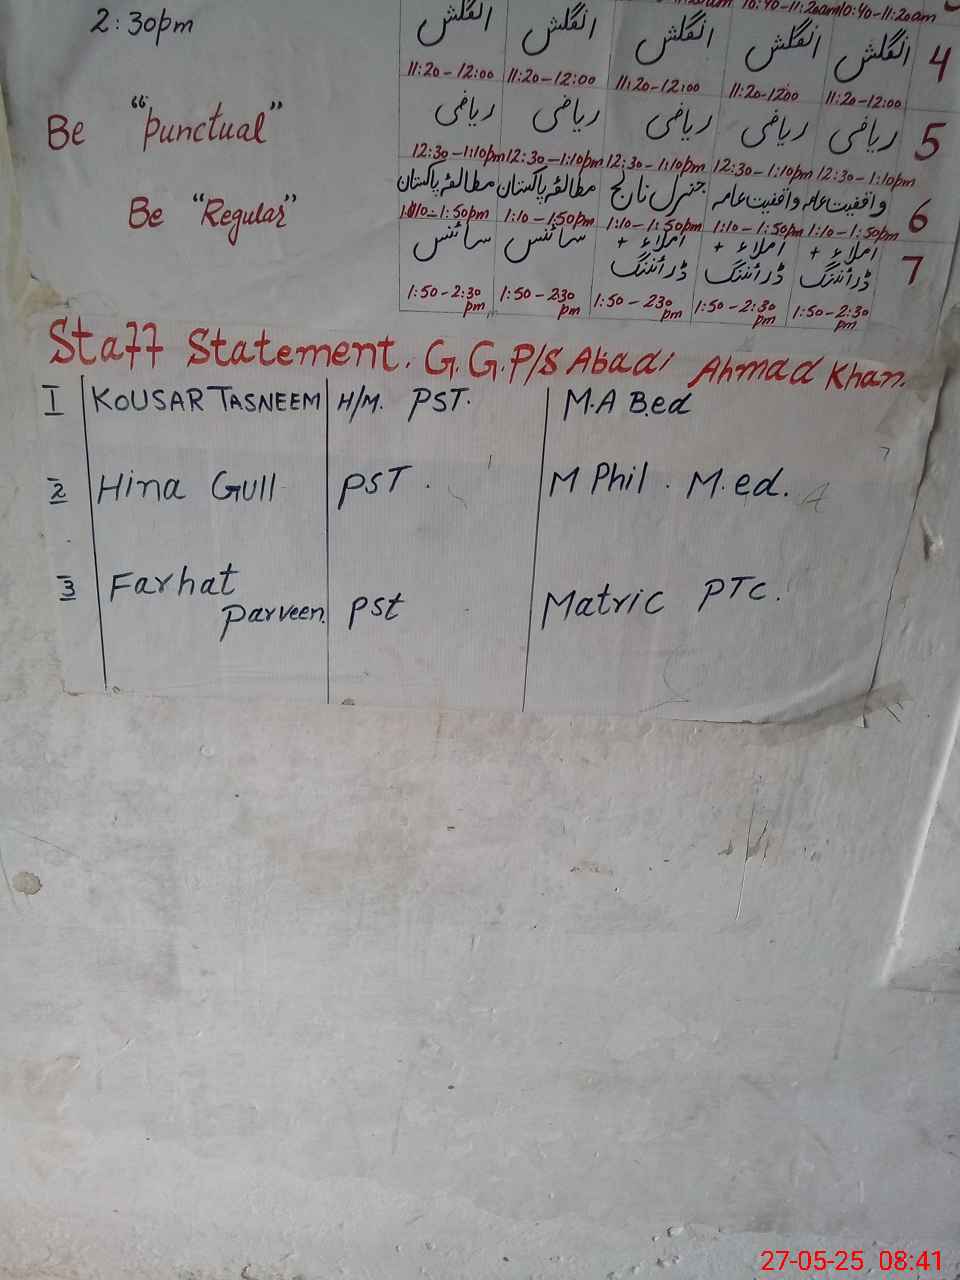 2:30pm
10:40-11:20am 10:40-11:20am
انگلش انگلش انگلش انگلش انگلش 4
11:20-12:00 11:20-12:00 11:20-12:00 11:20-1200 11:20-12:00
Be "Punctual"
ریاضی ریاضی ریاضی ریاضی ریاضی 5
12:30-1:10pm 12:30-1:10pm 12:30-1:10pm 12:30-1:10pm 12:30-1:10pm
Be "Regular"
مطالعہ پاکستان مطالعہ پاکستان جنرل نالج واقفیت عامہ واقفیت عامہ 6
1:10-1:50pm 1:10-1:50pm 1:10-1:50pm 1:10-1:50pm 1:10-1:50pm
سائنس سائنس املاء + املاء + املاء + 7
ڈرائننگ ڈرائننگ ڈرائننگ
1:50-2:30 pm 1:50-230 pm 1:50-230 pm 1:50-2:30 pm 1:50-2:30 pm
Staff Statement. G.G.P/S Abadi Ahmad Khan.
I KOUSAR TASNEEM H/M. PST. M.A B.ed
2 Hina Gull PST. M Phil. M.ed.
3 Farhat
Parveen. PSt Matric PTC.
27-05-25 08:41